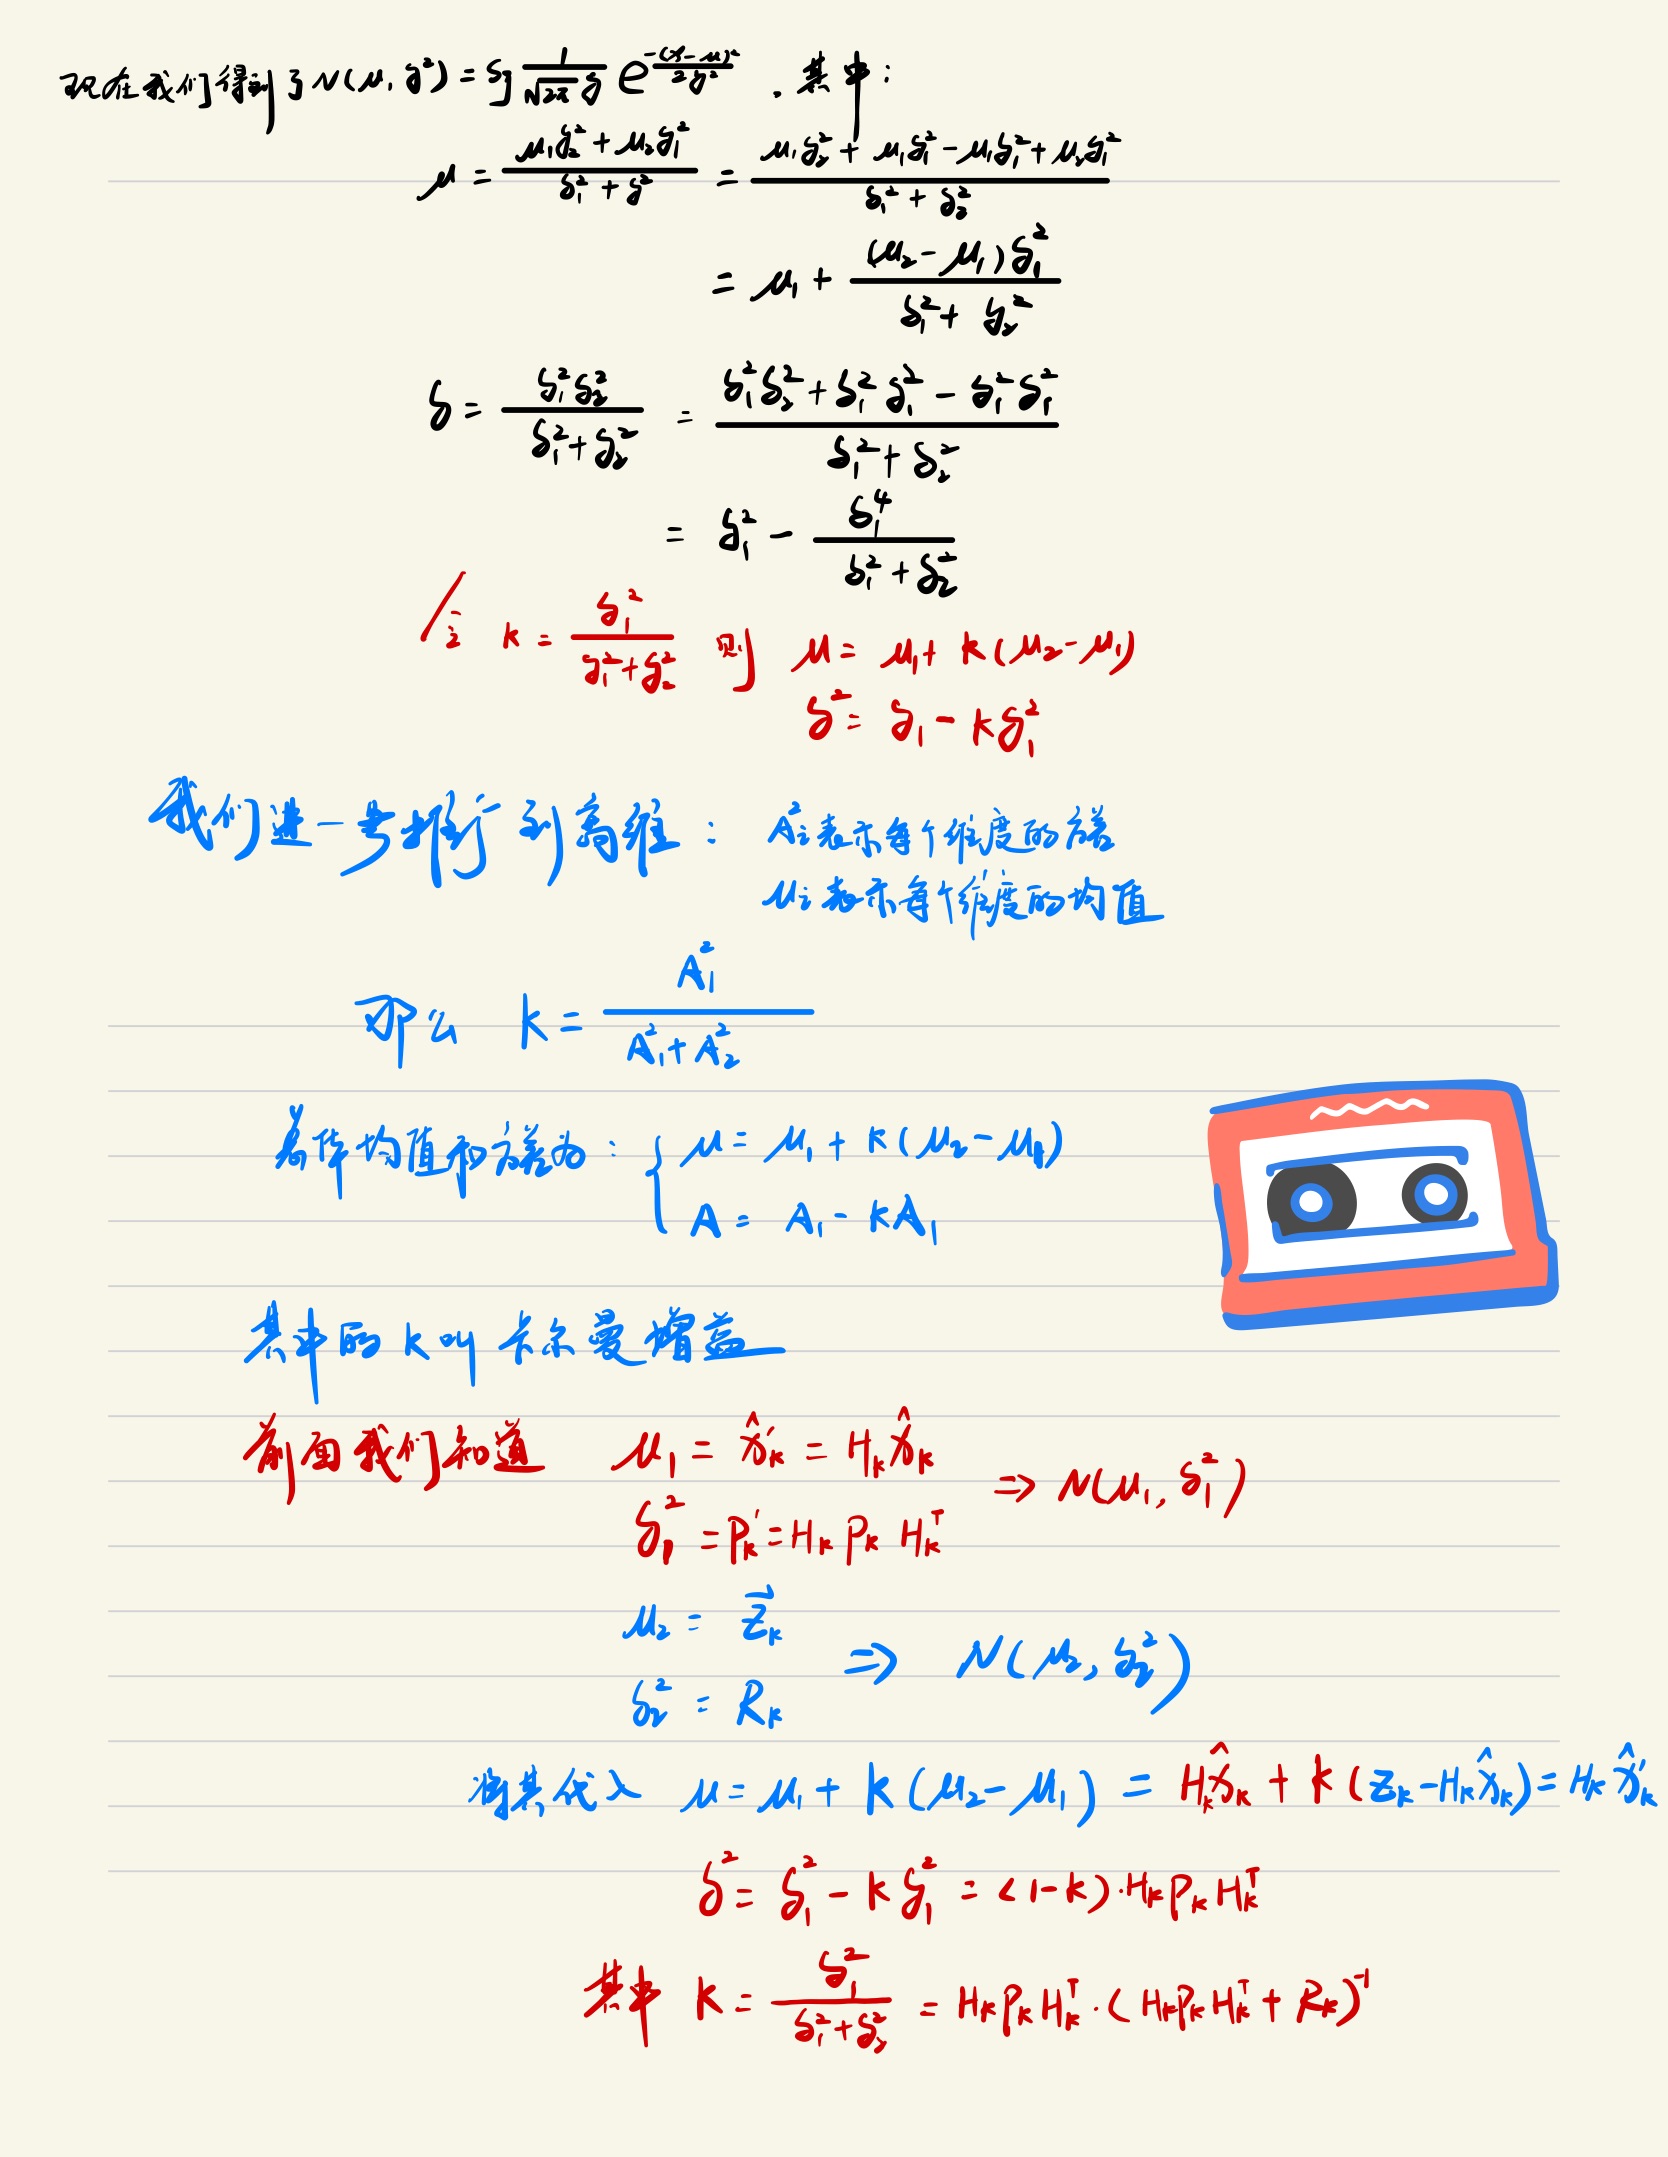 现在我们得到了 N(μ, δ²) = Sg 1/(√2π δ) e^(-(x-μ)²/2δ²) . 其中:
μ = (μ₁δ₂² + μ₂δ₁²)/(δ₁² + δ²) = (μ₁δ₂² + μ₁δ₁² - μ₁δ₁² + μ₂δ₁²)/(δ₁² + δ₂²)
= μ₁ + (μ₂ - μ₁)δ₁²/(δ₁² + δ₂²)
δ = δ₁²δ₂²/(δ₁² + δ₂²) = (δ₁²δ₂² + δ₁²δ₁² - δ₁²δ₁²)/(δ₁² + δ₂²)
= δ₁² - δ₁⁴/(δ₁² + δ₂²)
k = δ₁²/(δ₁² + δ₂²) 则 μ = μ₁ + k(μ₂ - μ₁)
δ² = δ₁ - kδ₁²
我们进一步推广到高维: Aᵢ² 表示每个维度的方差
μᵢ 表示每个维度的均值
那么 k = A₁²/(A₁² + A₂²)
均值和方差为: { μ = μ₁ + k(μ₂ - μ₁)
A = A₁ - kA₁
其中的 k 叫卡尔曼增益
前面我们知道 μ₁ = x̂'ₖ = Hₖx̂ₖ ⇒ N(μ₁, δ₁²)
δ₁² = Pₖ' = Hₖ Pₖ Hₖᵀ
μ₂ = z⃗ₖ ⇒ N(μ₂, δ₂²)
δ₂² = Rₖ
将其代入 μ = μ₁ + k(μ₂ - μ₁) = Hₖx̂ₖ + k(zₖ - Hₖx̂ₖ) = Hₖx̂'ₖ
δ² = δ₁² - kδ₁² = (1-k)·HₖPₖHₖᵀ
其中 k = δ₁²/(δ₁² + δ₂²) = HₖPₖHₖᵀ·(HₖPₖHₖᵀ + Rₖ)⁻¹